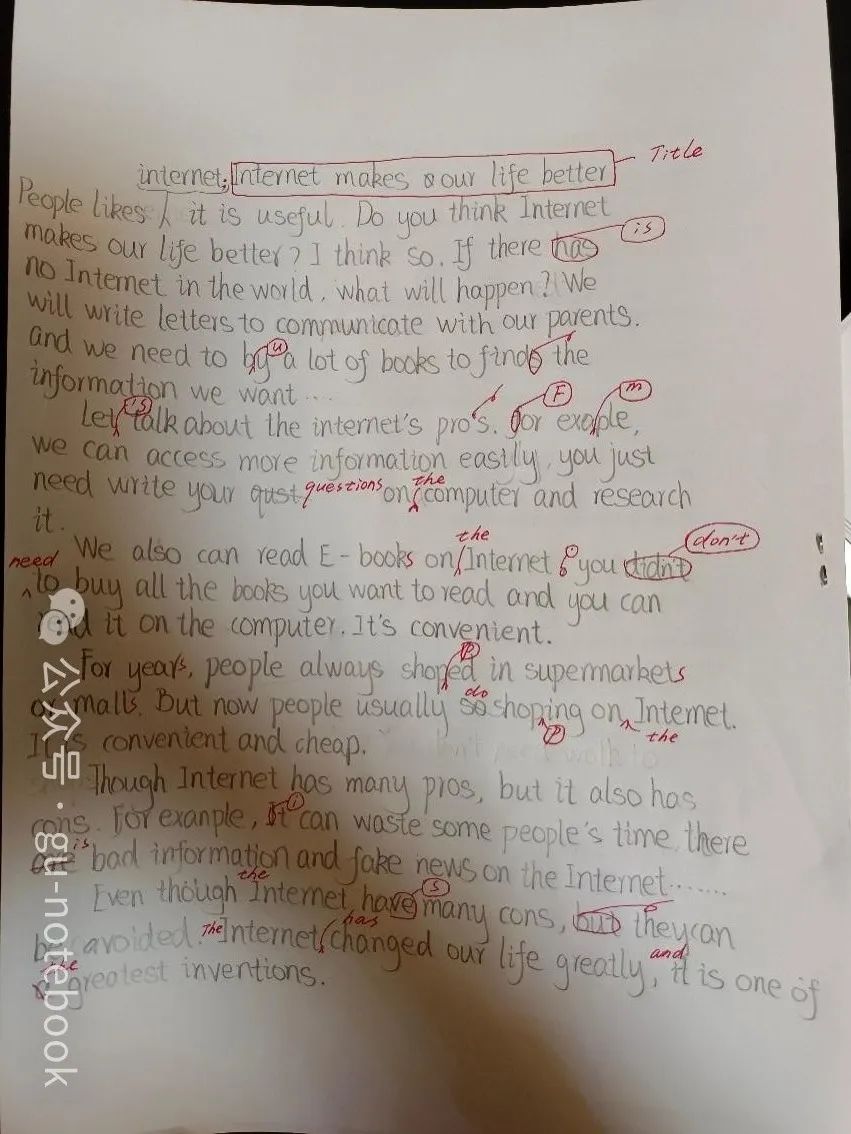 internet; Internet makes our life better Title
People likes it is useful. Do you think Internet
makes our life better? I think so. If there has is
no Internet in the world, what will happen? We
will write letters to communicate with our parents.
and we need to by u a lot of books to finds the
information we want ...
Let 's talk about the internet's pro's. for F exaple, m
we can access more information eastly, you just
need write your qust questions on the computer and research
it.
We also can read E-books on the Internet. you didn't don't
need to buy all the books you want to read and you can
read it on the computer. It's convenient.
For years, people always shoped p in supermarkets
or malls. But now people usually so do shoping p on the Internet.
It is convenient and cheap.
Though Internet has many pros, but it also has
cons. For exanple, It i can waste some people's time, there
are is bad information and fake news on the Internet.......
Even though the Internet have s many cons, but they can
be avoided. The Internet has changed our life greatly, and it is one of
the greatest inventions.
公众号·gu-notebook